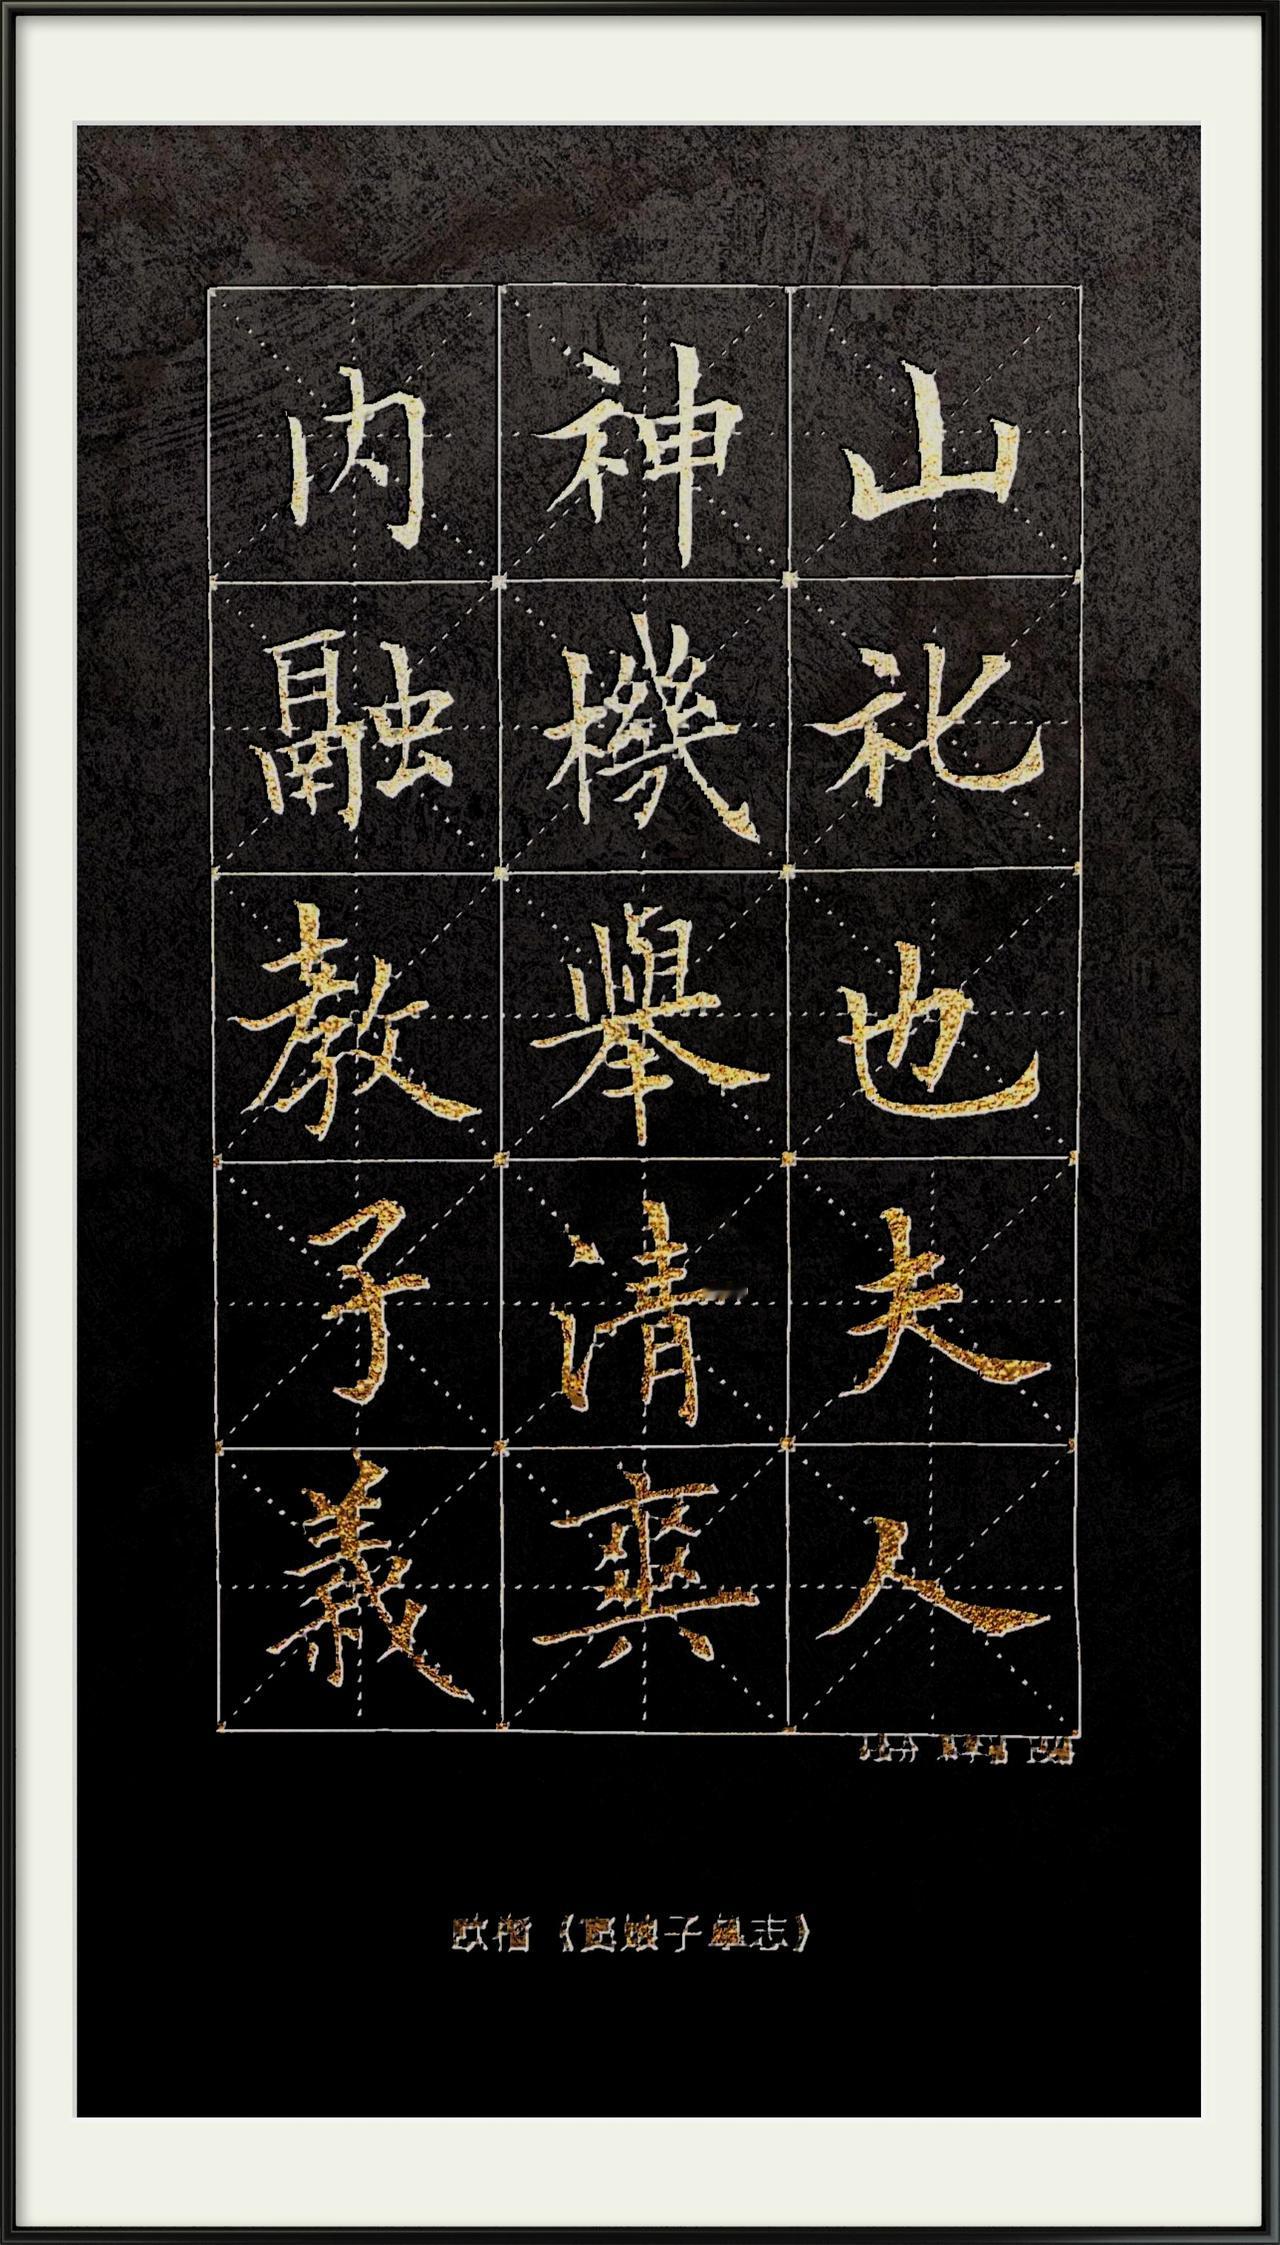 山礼也夫人
神機舉清爽
内融教子義
欧楷《娘子墓志》